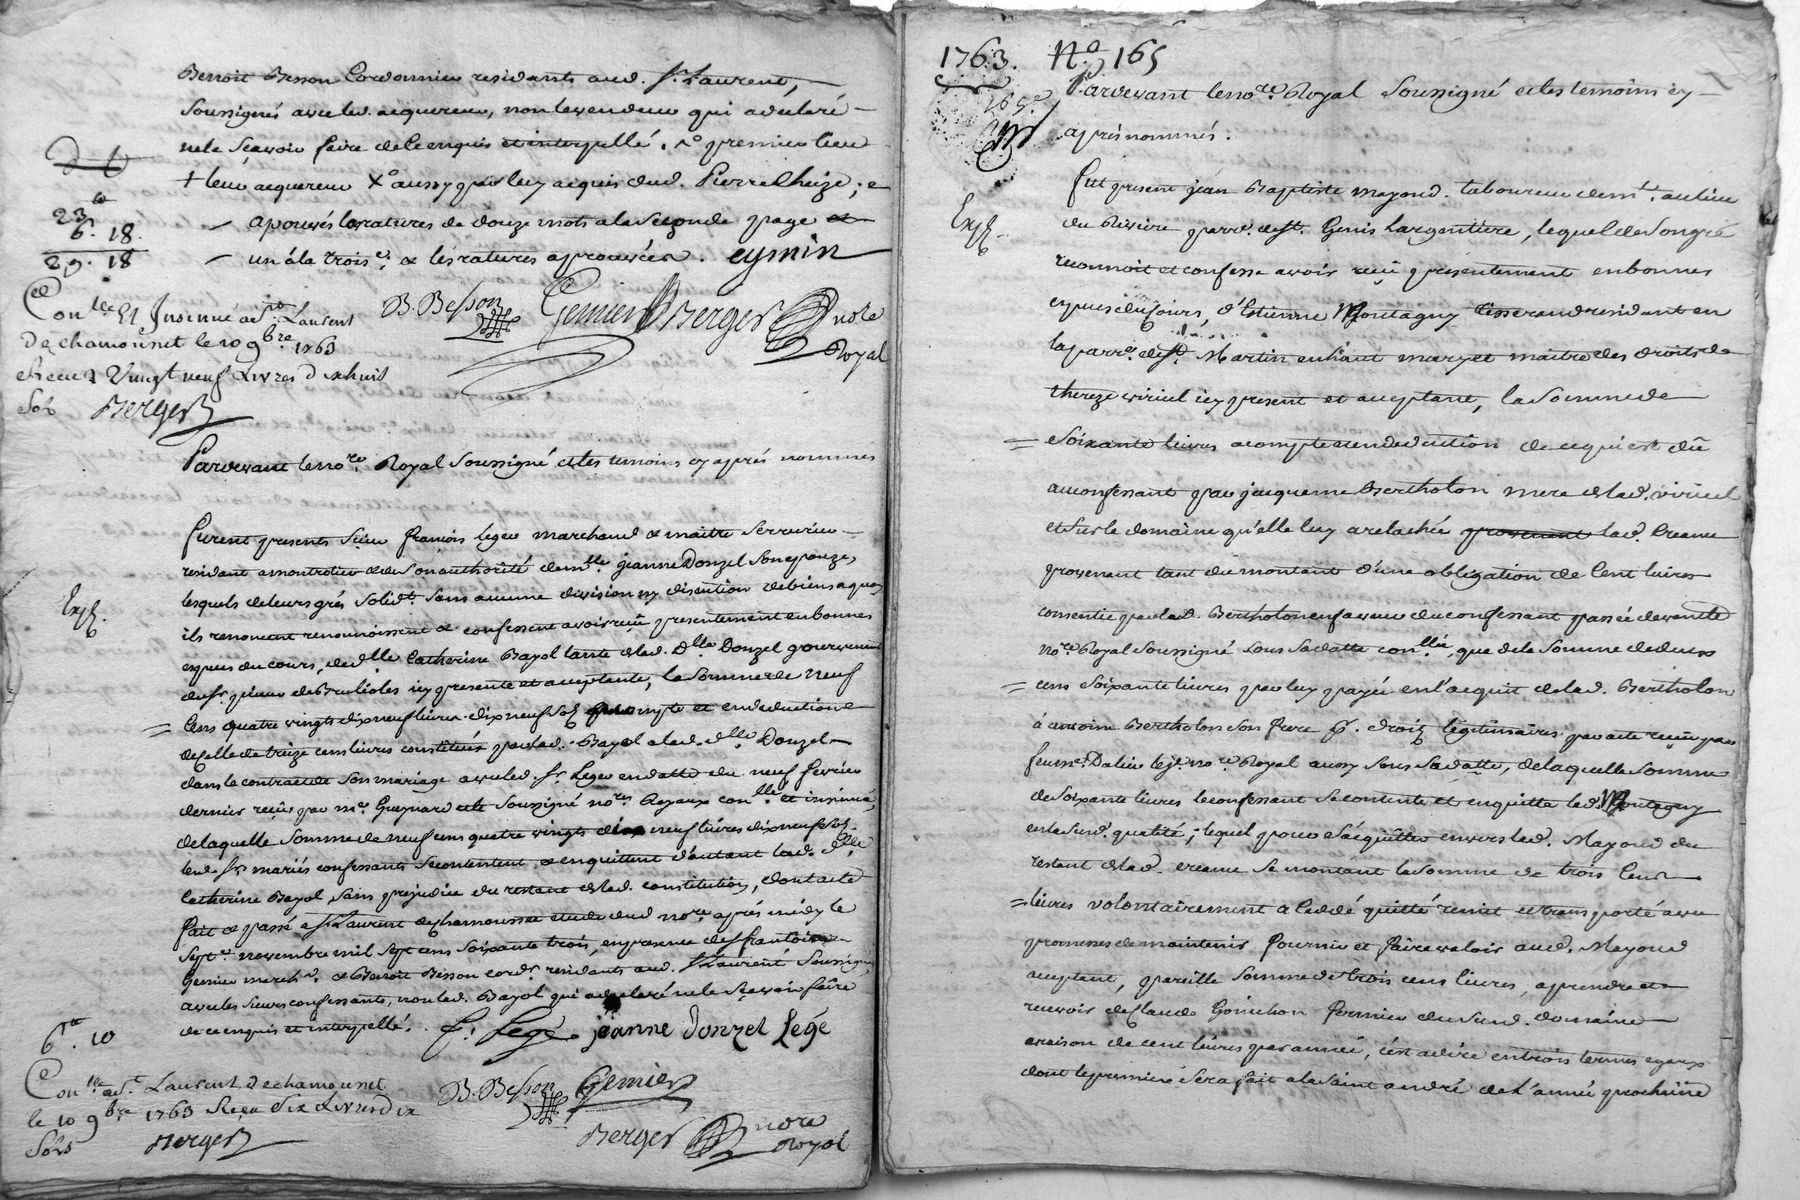 Benoit Besson Cordonnier residants aud. St. Laurent,
soussignés avec led. acquereur, non le vendeur qui a declaré
ne le sçavoir faire de ce enquis et interpellé. 1o premier lieu
+ leur acquereur Xo aussy par luy acquis dud. Pierre Cheize; e
apouvés les ratures de douze mots a la seconde page et
un a la trois.e, & les ratures aprouvées. eymin
23
6. 18.
29. 18
B. Besson Gemier Berger nore
Royal
Conlle Et Insinué a St. Laurent
De chamousset le 10 9bre 1763
et Receu Vingt neuf Livres dixhuit
Sols Berger
Pardevant le nore. Royal soussigné et les temoins cy aprés nommes
Exp.
furent presents sieur françois Leger marchand & maitre serrurier
residant a montrotier & de son authorité demlle. jeanne Donzel son epouze,
lesquels de leurs grés solidt. sans aucune division ny discution de biens a quoy
ils renoncent reconnoissent & confessent avoir reçu presentement en bonnes
especes du cours, de dlle Catherine Bayol tante de lad. Dlle Donzel gouvernante
du sr. prieur de Brulioles icy presente et acceptante, la somme de neuf
= Cens quatre vingts dix neuf livres dix neuf sols acompte et en deduction
de celle de treize cens livres constituée par lad. Bayol a lad. dlle. Donzel
dans le contract de son mariage avec led. sr. Leger en datte du neuf fevrier
dernier reçu par me. Gueynard et le soussigné nores Royaux conllé et insinué,
de laquelle somme de neuf cens quatre vingts dix neuf livres dix neuf sols
lesd. srs mariés confessants se contentent & en quittent d'autant lad. dlle
Catherine Bayol, sans prejudice du restant de lad. constitution, dont acte
fait & passé a St. Laurent de chamousset etude dud. nore aprés midy le
sept.e novembre mil sept cens soixante trois, en presence de sr françois
Gemier march.d & Benoit Besson cordr. residants aud. St Laurent soussignés
avec les sieurs confessants, non lad. Bayol qui a declaré ne le sçavoir faire
de ce enquis et interpellé. f. Legé jeanne donzel Legé
6. 10
Conlle a St. Laurent de chamousset
le 10 9bre 1763 Reçu Six Livres dix
Sols Berger
B. Besson Gemier
Berger nore
Royal
1763. No. 165
165e
Pardevant le nore. Royal soussigné et les temoins cy
aprés nommés.
Exp.
fut present jean Baptiste Mayoud laboureur demt. au lieu
du Riviere parr. de St. Genis Largentiere, lequel de son gré
reconnoit et confesse avoir reçu presentement en bonnes
especes du cours, d'Estienne Montagny tisserand residant en
la parr. de St. Martin en haut mary et maitre des droits de
thereze viricel icy present et acceptant, la somme de
= soixante livres acompte et en deduction de ce qui est dû
au confessant par jacqueme Bertholon mere de lad. viricel
et sur le domaine qu'elle luy a relachée lad. creance
provenant tant du montant d'une obligation de Cent livres
consentie par lad. Bertholon en faveur du confessant passée devant le
nore Royal soussigné sous sa datte conllée, que de la somme de deux
= cens soixante livres par luy payée en l'acquit de lad. Bertholon
à antoine Bertholon son frere p. droits legitimaires par acte reçu par
feu me. Dalin nore Royal aussy sous sa datte, de laquelle somme
de soixante livres le confessant se contente et en quitte led. Montagny
en la susd. qualité; lequel pour s'acquitter envers led. Mayoud du
restant de lad. creance se montant la somme de trois Cens
= livres volontairement a ceddé quitté remis et transporté avec
promesses de maintenir fournir et faire valoir aud. Mayoud
acceptant, pareille somme de trois cens livres, a prendre et
recevoir de Claude Goinchon fermier du susd. domaine
a raison de cent livres par année, c'est a dire en trois termes egaux
dont le premier sera fait a la saint andré de l'année prochaine